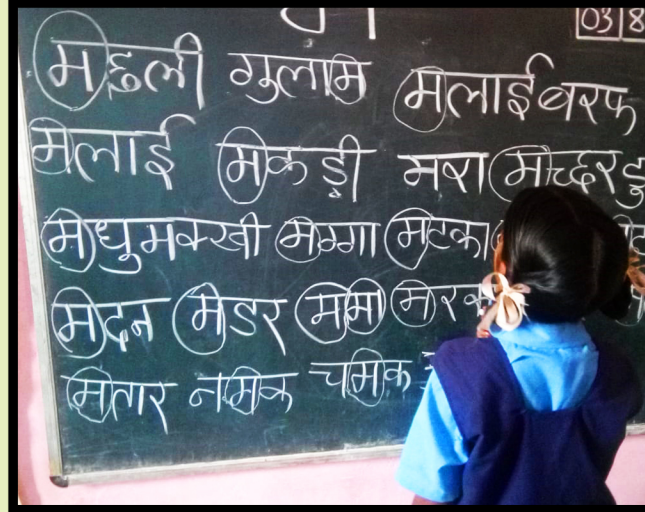 03 8
मछली गुलाम मलाईबरफ
मलाई मकड़ी मरा मच्छर
मधुमक्खी मग्गा मटका
मदन मडर ममा
मतार नमक चमक